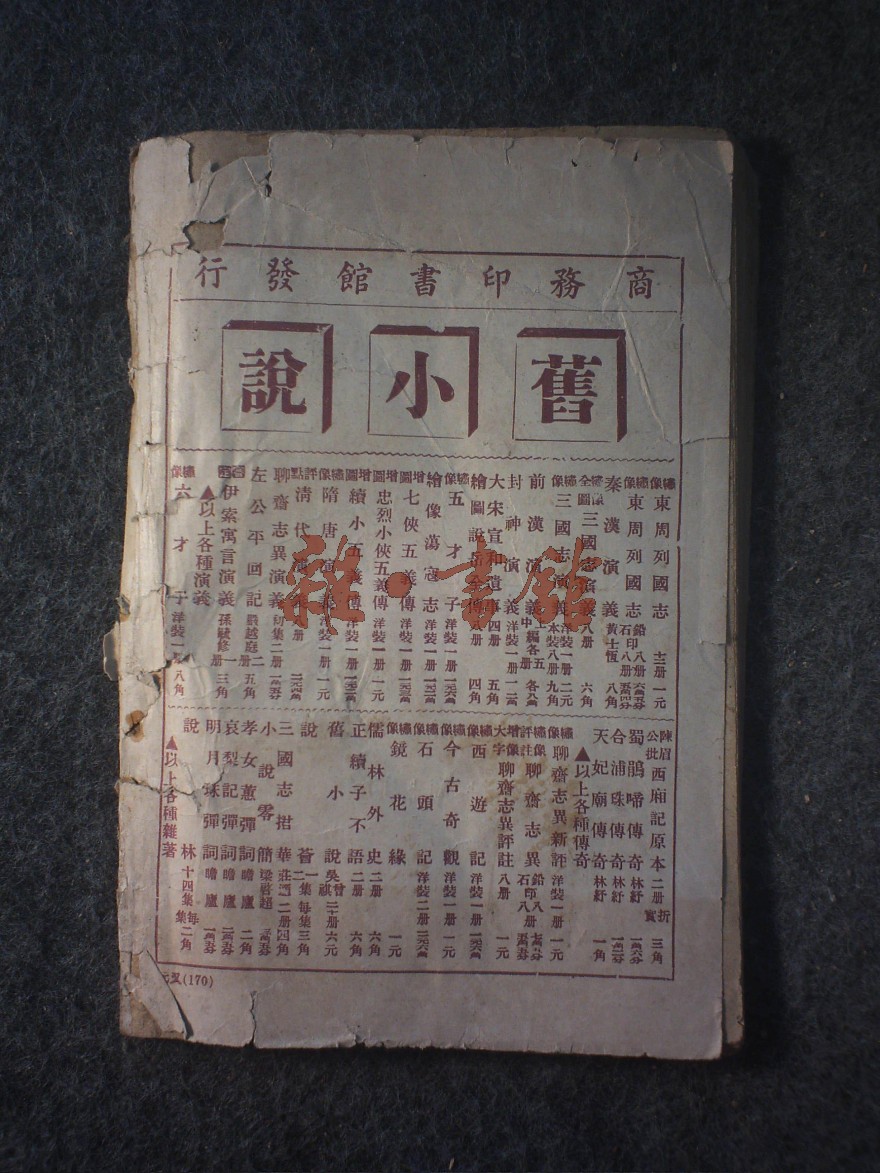 商務印書館發行
舊小說
繡像東周列國志 十二冊 一元
繡像東周列國志 鉛印八冊 石印八冊
秦漢演義 黃士恆 八角
全圖繡像三國志演義 八冊 六角
繡像三國志演義 洋裝一冊 二元 本裝八冊 九角
前漢演義 上中編各五冊
封神演義 洋裝一冊
大宋宣和遺事 四冊 五角
繪圖說岳全傳 八冊 四角
繡像五才子 洋裝一冊
繪像蕩寇志 洋裝一冊
增圖七俠五義傳 洋裝一冊
增圖忠烈小俠五義傳 洋裝一冊
增圖續小五義傳 洋裝一冊
繡像隋唐演義 洋裝一冊 一元
評點清代演義
聊齋志異演義 初集二冊
左公平回記 嚴越庭 二冊 五角
伊索寓言演義 孫毓修 一冊 三角
▲以上各種演義
繡像六才子 洋裝一冊 八角
陳眉公批西廂記原本 二冊 折實 三角
蜀鵑啼傳奇 林紓
合浦珠傳奇 林紓
天妃廟傳奇 林紓 一角
▲以上各種傳奇
繡像聊齋志異新評 洋裝一冊 一元
繡像評註聊齋志異 鉛印八冊 石印八冊
大字增像聊齋志異評註 八冊 一元
繡像西遊記 洋裝一冊
繡像今古奇觀 洋裝一冊 一元
繡像石頭記 洋裝二冊
繡像鏡花緣 一元
儒林外史 二冊 六角
正續子不語 二冊 六角
舊小說 吳曾祺 二十冊 六元
說薈 一二集每集三角
三國志捃華 莊適 二冊 四角
小說零簡 梁啓超
孝女蕙彈詞 瞻廬 二角
哀梨記彈詞 瞻廬
明月珠彈詞 瞻廬
說林 十四集 每集二角
▲以上各種雜著
元㚑(170)
雜·書館